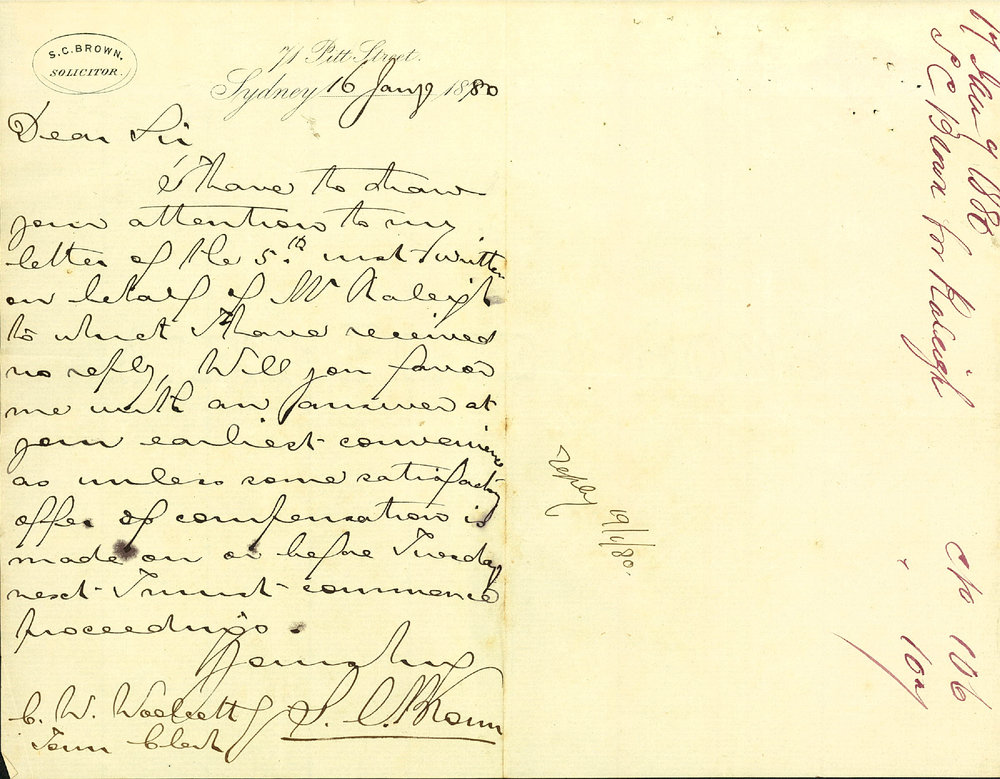 S.C. BROWN.
SOLICITOR.
71 Pitt Street.
Sydney 16 Jany 1880
Dear Sir
I have to draw
your attention to my
letter of the 5th inst written
on behalf of Mr Raleigh
to which I have received
no reply, Will you favor
me with an answer at
your earliest convenience
as unless some satisfactory
offer of compensation is
made on or before Tuesday
next I must commence
proceedings.
Yours truly
S. C. Brown
C. W. Woolcott
Town Clerk
reply
19/1/80.
17 Jany 1880
S C Brown for Raleigh
106
107